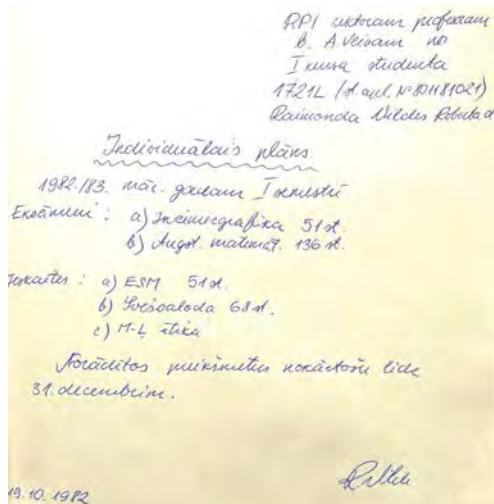 RPI rektoram profesoram
B. A. Veisam no
I kursa studenta
1721L (st. apl. № 801181021)
Raimonda Vildes Roberta d.
Individuālais plāns
1982./83. māc. gadam I semestrī
Eksāmeni: a) Inženiergrafika 51 st.
b) Augst. matemāt. 136 st.
Ieskaites: a) ESM 51 st.
b) Svešvaloda 68 st.
c) M-Ļ ētika
Norādītos priekšmetus nokārtošu līdz
31. decembrim.
19.10.1982